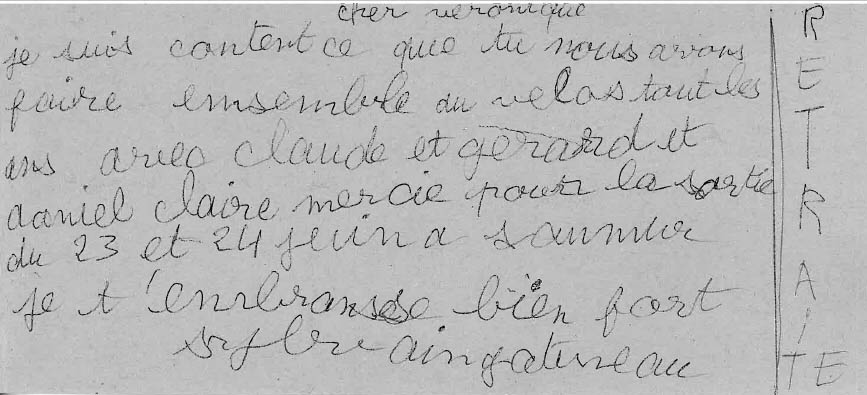 cher veronique
je suis content ce que tu nous avons
faire ensemble du velos tout les
ans avec claude et gerard et
daniel claire mercie pour la sortie
du 23 et 24 juin a saumur
je t'embrasse bien fort
RETRAITE